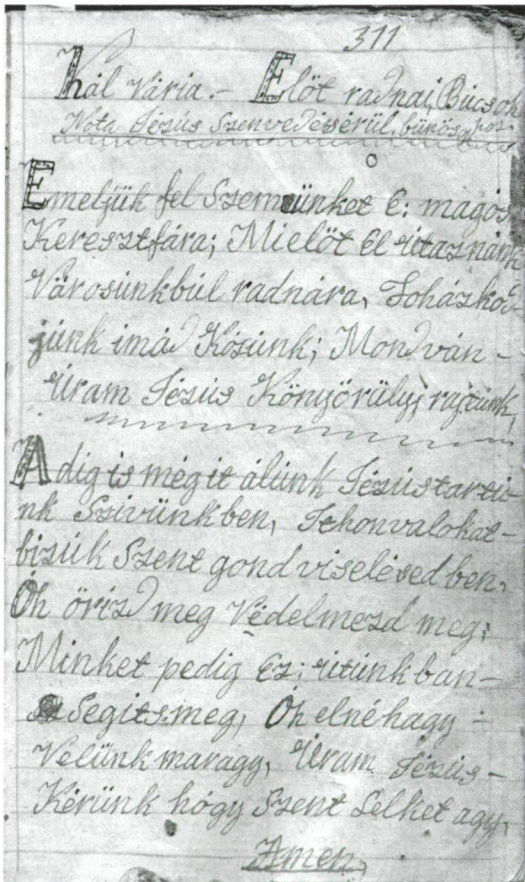 311
hál Vária.- Elöt radnai, Búcsok
Nóta Jézús Szenvedéssérül, bűnösg
Emeljük fel Szemünket E: magós
Keresztfára; Mielöt El útaznánk
Városúnkbúl radnára, Foházkod
júnk imád Kósúnk; Mondván-
Úram Jézús Könyörülly, rajtúnk,
Adig is még it álúnk Jézús tartsú
nk Szivünkben, Ithonvalokat-
bizúk Szent gond viselésed ben,
Óh őrizd meg Védelmezd meg;
Minket pedig Ez: útúnkban-
Segits meg, Óh elné hagy-
Velünk maragy, Úram Jézús-
Kérünk hógy Szent Lelket agy,
Amen,